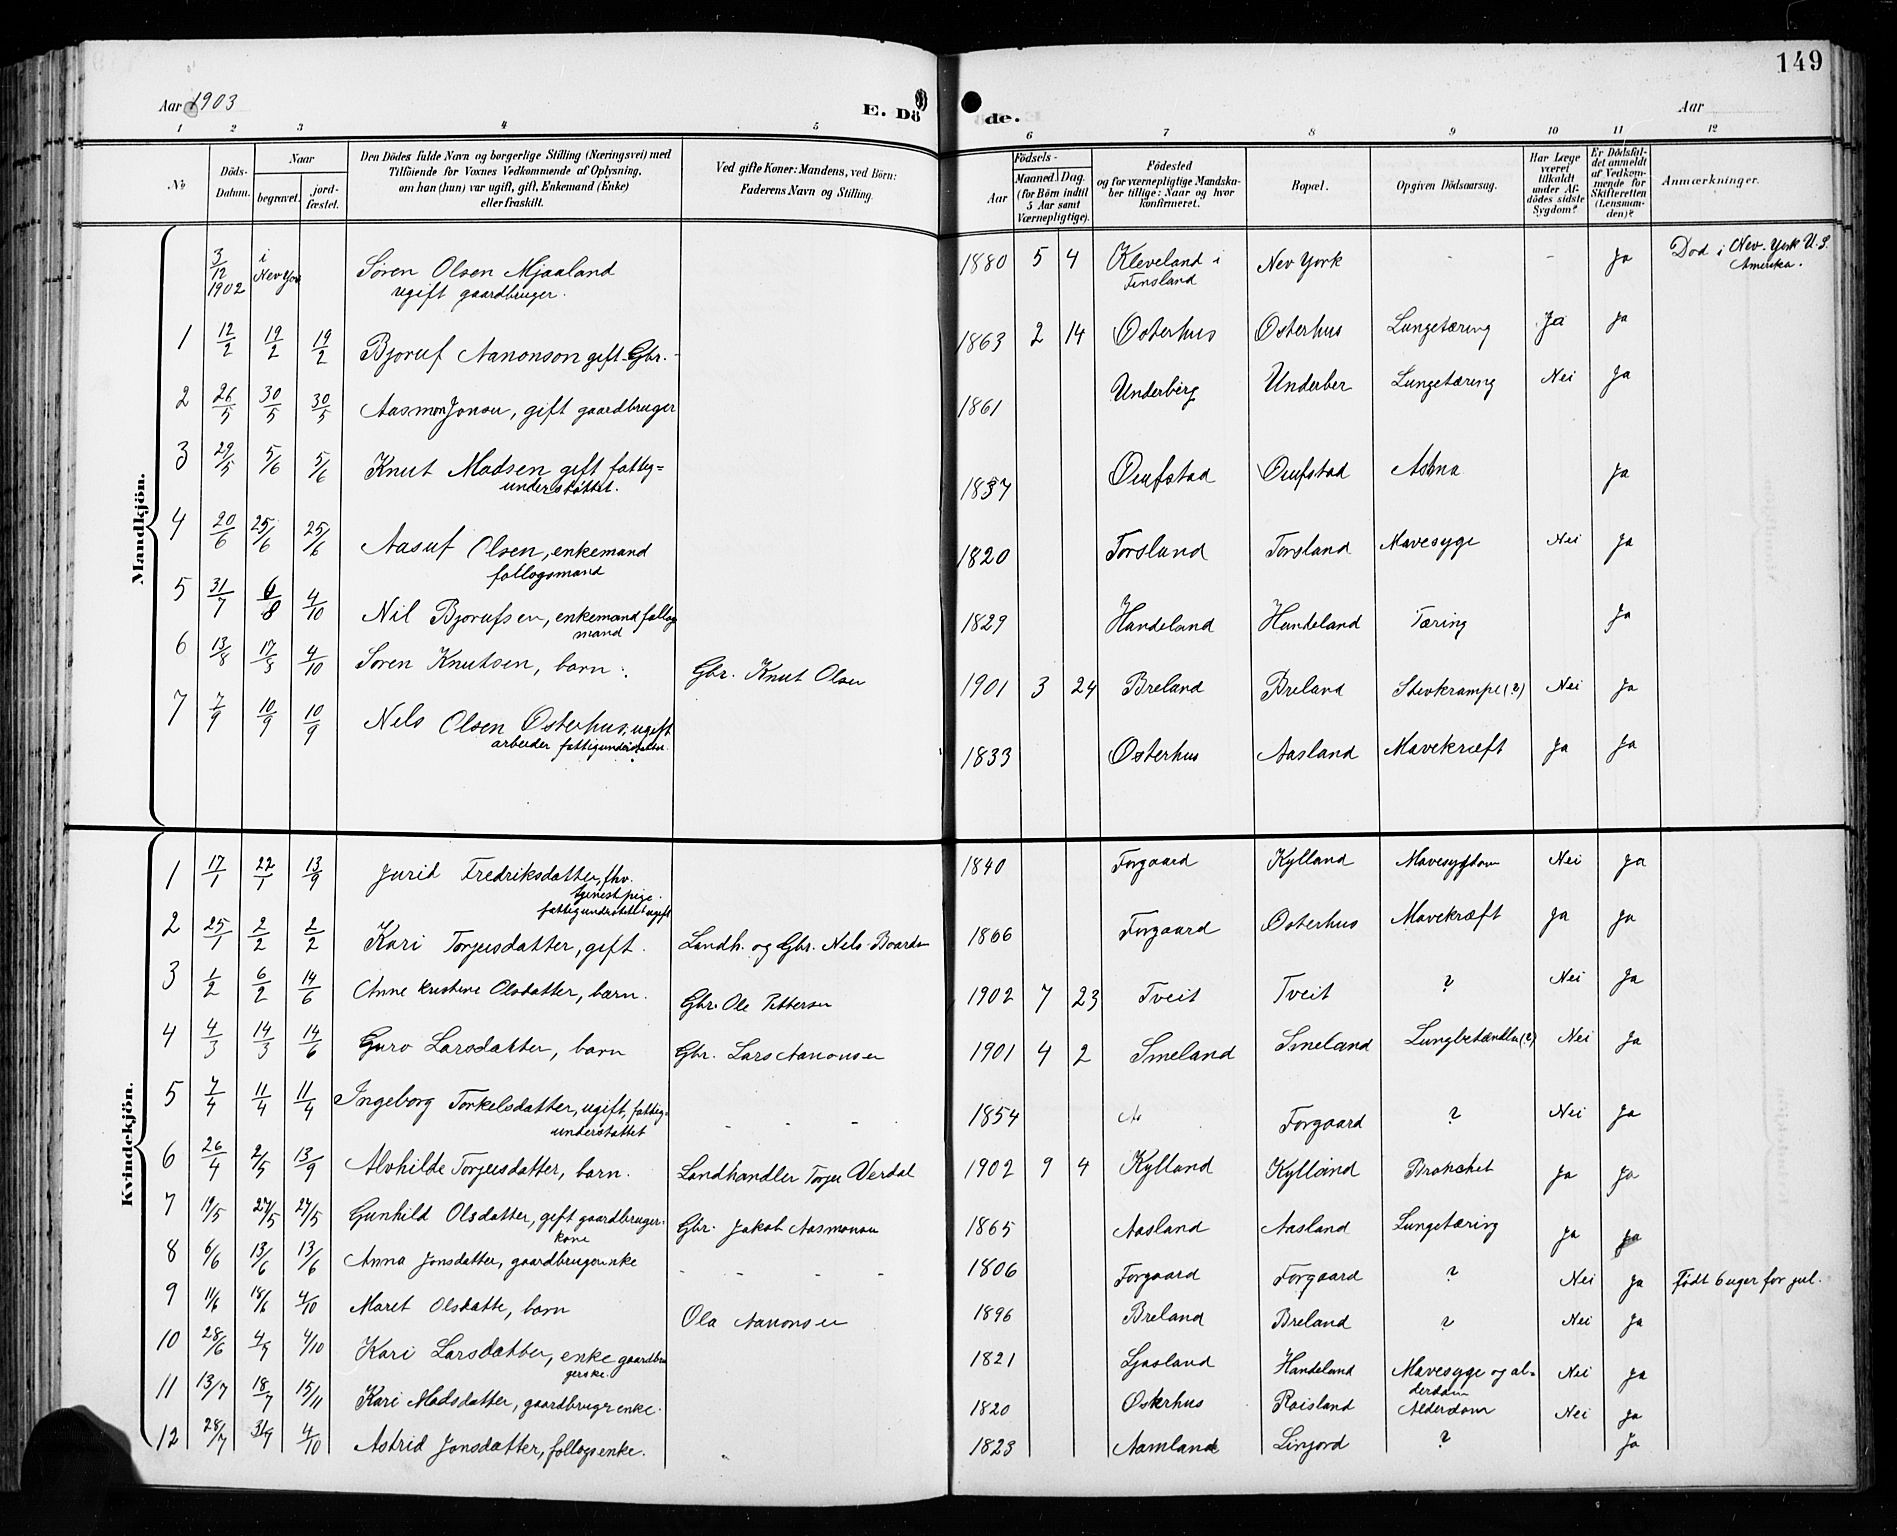 149
Aar 1903
E. Döde.
Aar
1 2 3 4 5 6 7 8 9 10 11 12
No
Döds-Datum.
Naar
begravet.
jord-fæstet.
Den Dödes fulde Navn og borgerlige Stilling (Næringsvei) med
Tilföiende for Voxnes Vedkommende af Oplysning,
om han (hun) var ugift, gift, Enkemand (Enke)
eller fraskilt.
Ved gifte Koner: Mandens, ved Börn:
Faderens Navn og Stilling.
Födsels-
Aar
Maaned. Dag.
(for Börn indtil
5 Aar samt
Værnepligtige).
Födested
og for værnepligtige Mandska-
ber tillige: Naar og hvor
konfirmeret.
Bopæl.
Opgiven Dödsaarsag.
Har Læge
været
tilkaldt
under Af-
dödes sidste
Sygdom?
Er Dödsfal-
det anmeldt
af Vedkom-
mende for
Skifteretten
(Lensman-
den)?
Anmærkninger.
Mandkjön.
3/12 1902 i Nev York Sören Olsen Mjaaland 1880 5 4 Kleveland i Nev York - - Ja Död i Nev-York U.S.
ugift gaardbruger. Finsland Amerika.
1 12/2 19/2 19/2 Bjoruf Aanonson gift Gbr. - 1863 2 14 Osterhus Osterhus Lungetæring Ja Ja
2 26/5 30/5 30/5 Aasmon Jonsu, gift gaardbruger 1861 Underberg Underber Lungetæring Nei Ja
3 29/5 5/6 5/6 Knut Madsen gift fattig= 1837 Oufstad Oufstad Astma Ja
understøttet.
4 20/6 25/6 25/6 Aasuf Olsen, enkemand 1820 Torsland Torsland Mavesyge Nei Ja
follogsmand
5 31/7 6/8 4/10 Nil Bjorufsen, enkemand follog 1829 Handeland Handeland Tæring Ja
mand
6 13/8 17/8 4/10 Soren Knutsen, barn. Gbr. Knut Olsen 1901 3 24 Breland Breland Stivkrampe (?) Nei Ja
7 7/9 10/9 10/9 Nels Olsen Osterhus, ugift 1833 Osterhus Aasland Mavekræft Ja Ja
arbeider fattigunderstøtten.
Kvindekjön.
1 17/1 22/1 13/9 Jurid Fredriksdatter, fhv. 1840 Forgaard Kylland Mavesygdom Nei Ja
tjenestpige.
fattigundstøttet ugift
2 25/1 2/2 2/2 Kari Torjusdatter, gift. Landh. og Gbr. Nels Boards 1866 Forgaard Osterhus Mavekræft Ja Ja
3 1/2 6/2 14/6 Anne Kristine Olsdatter, barn. Gbr. Ole Pettersen 1902 7 23 Tveit Tveit ? Nei Ja
4 4/3 14/3 14/6 Guro Larsdatter, barn Gbr. Lars Aanonsen 1901 4 2 Smeland Smeland Lungbetændlse (?) Nei Ja
5 7/4 11/4 11/4 Ingeborg Torkelsdatter, ugift, fattig- - - - 1854 Forgaard ? Nei Ja
understøttet
6 26/4 2/5 13/9 Alvhilde Torjusdatter, barn. Landhandler Torjus Verdal 1902 9 4 Kylland Kylland Bronchit Ja Ja
7 19/5 27/5 27/5 Gunhild Olsdatter, gift gaardbruger- Gbr. Jakob Aasmonsen 1865 Aasland Aasland Lungetæring Ja Ja
kone
8 6/6 13/6 13/6 Anna Jonsdatter, gaardbrugerenke - - - - 1806 Forgaard Forgaard ? Nei Ja Født 6 uger for jul.
9 11/6 18/6 4/10 Maret Olsdatte, barn Ola Aanonsen 1896 Breland Breland ? Nei Ja
10 28/6 4/7 4/10 Kari Larsdatter, enke gaardbru 1821 Ljosland Handeland Mavesyge og al= Nei Ja
gerske. derdom
11 13/7 18/7 15/11 Kari Madsdatter, gaardbrugrenke. 1820 Osterhus Roisland Alderdom Nei Ja
12 28/7 31/7 4/10 Astrid Jonsdatter, follogsenke. 1823 Aamland Linjord ? Ja